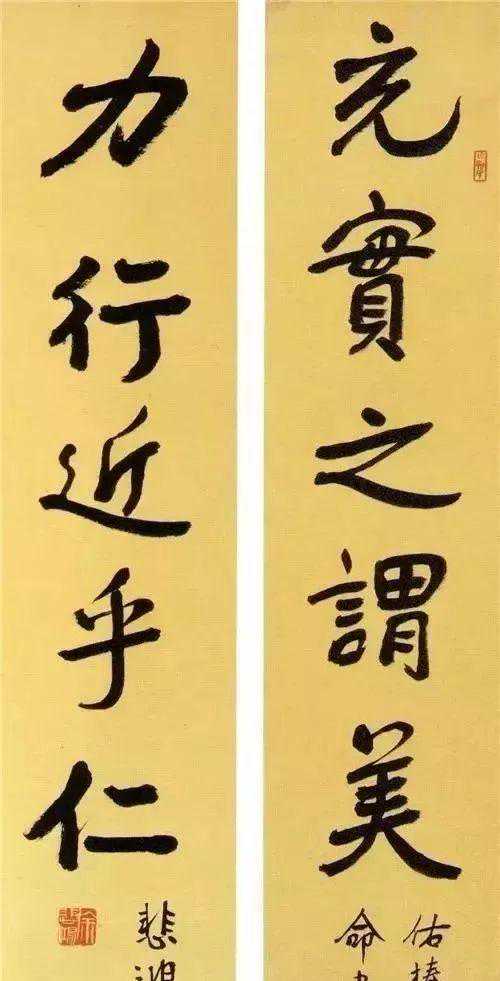 充實之謂美
力行近乎仁
佑
命
悲鴻